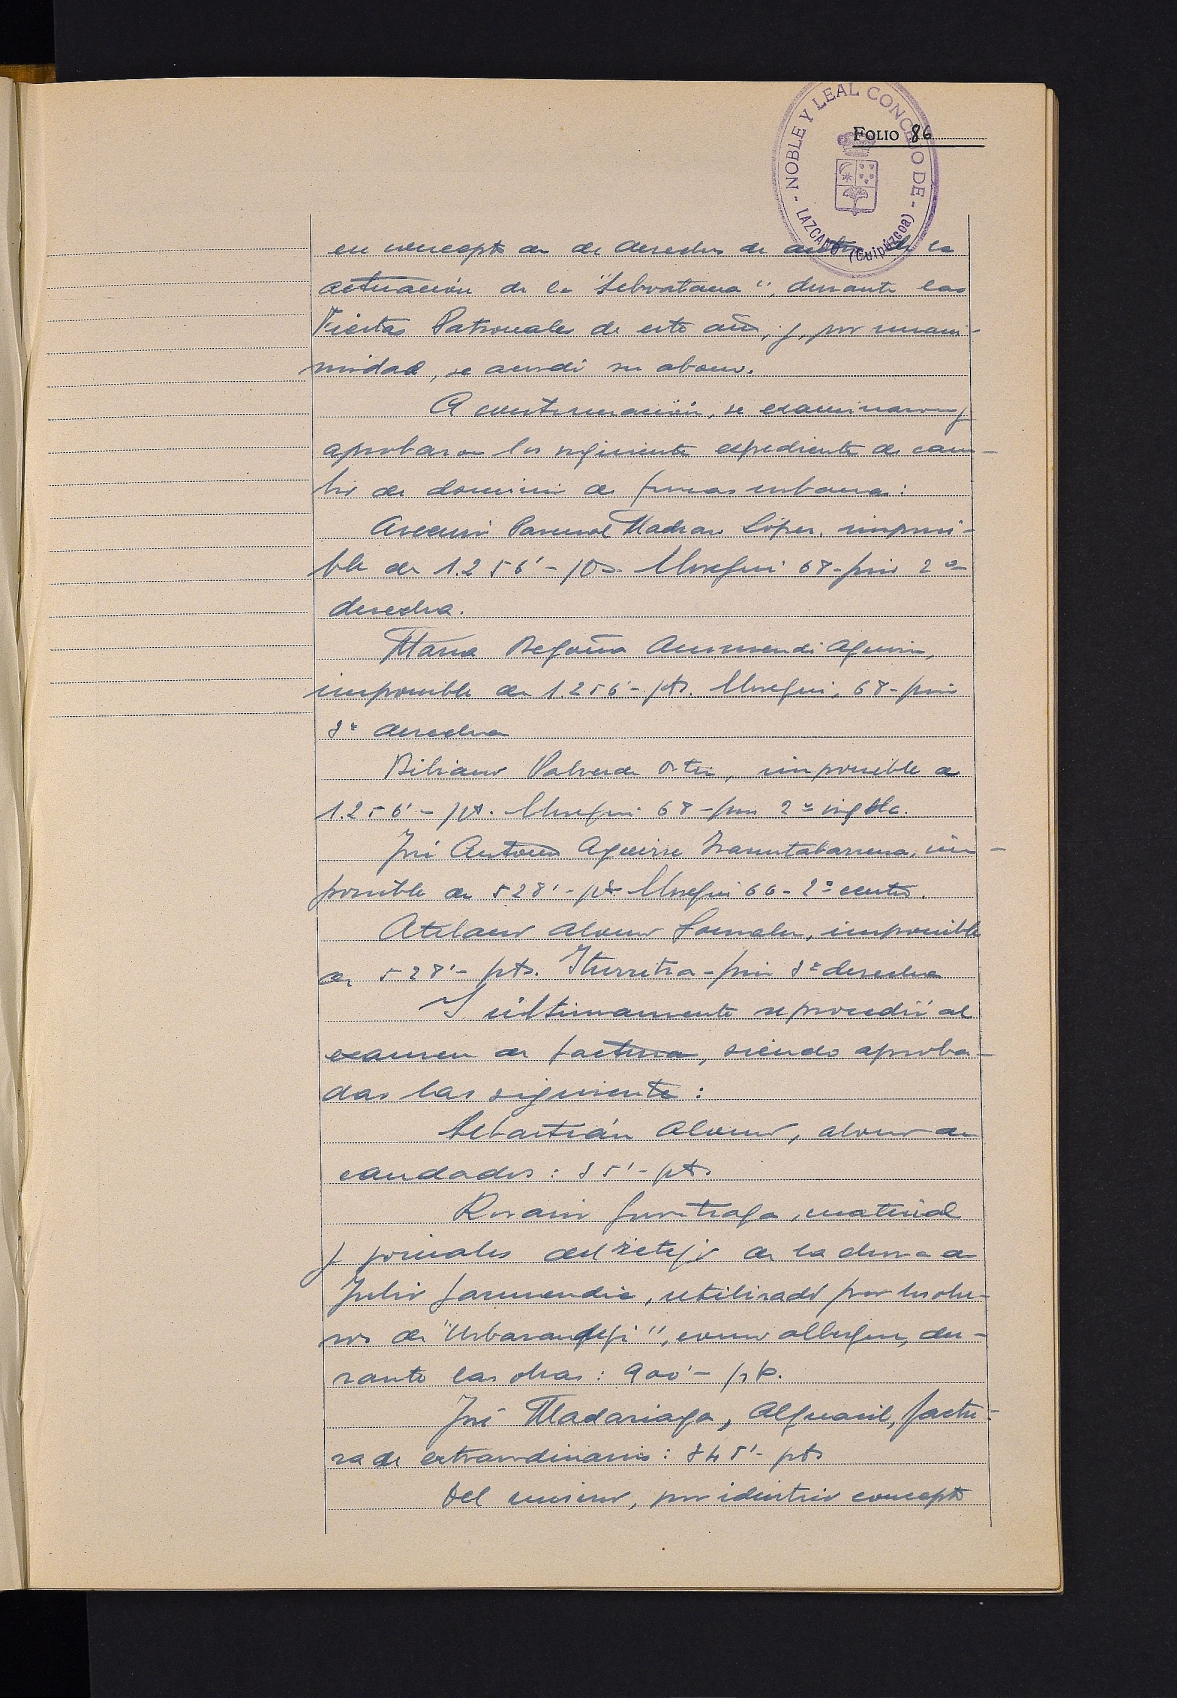 NOBLE Y LEAL CONCEJO DE - LAZCANO (Guipúzcoa)
FOLIO 86
en concepto de de derechos de autor de la
actuación de la "Sebastiana", durante las
Fiestas Patronales de este año, y, por unani-
midad, se acordó su abono.
A continuación, se examinaron y
aprobaron los siguientes expedientes de cam-
bio de dominio de fincas urbanas:
Pascual Madran López, imponi-
ble de 1.256'- pts. 68-piso 2º
derecha.
María Begoña Aguirre,
imponible de 1.256'- pts. 68-piso
3º derecha
Ortiz, imponible de
1.256'- pts. 68-piso 2º izqda.
José Antonio Aguirre im-
ponible de 528'- pts. 66-2º centro.
Atilano Alonso González, imponible
de 528'- pts. piso 3º derecha
Y últimamente se procedió al
examen de facturas, siendo aproba-
das las siguientes:
Sebastián Alonso, abono de
candados: 35'- pts.
material
y jornales del retejo de la de
Julio Garmendia, utilizado por los obre-
ros de como albergue, du-
rante las obras: 900'- pts.
José Madariaga, Alguacil, factu-
ra de extraordinarios: 845'- pts
Del mismo, por idéntico concepto